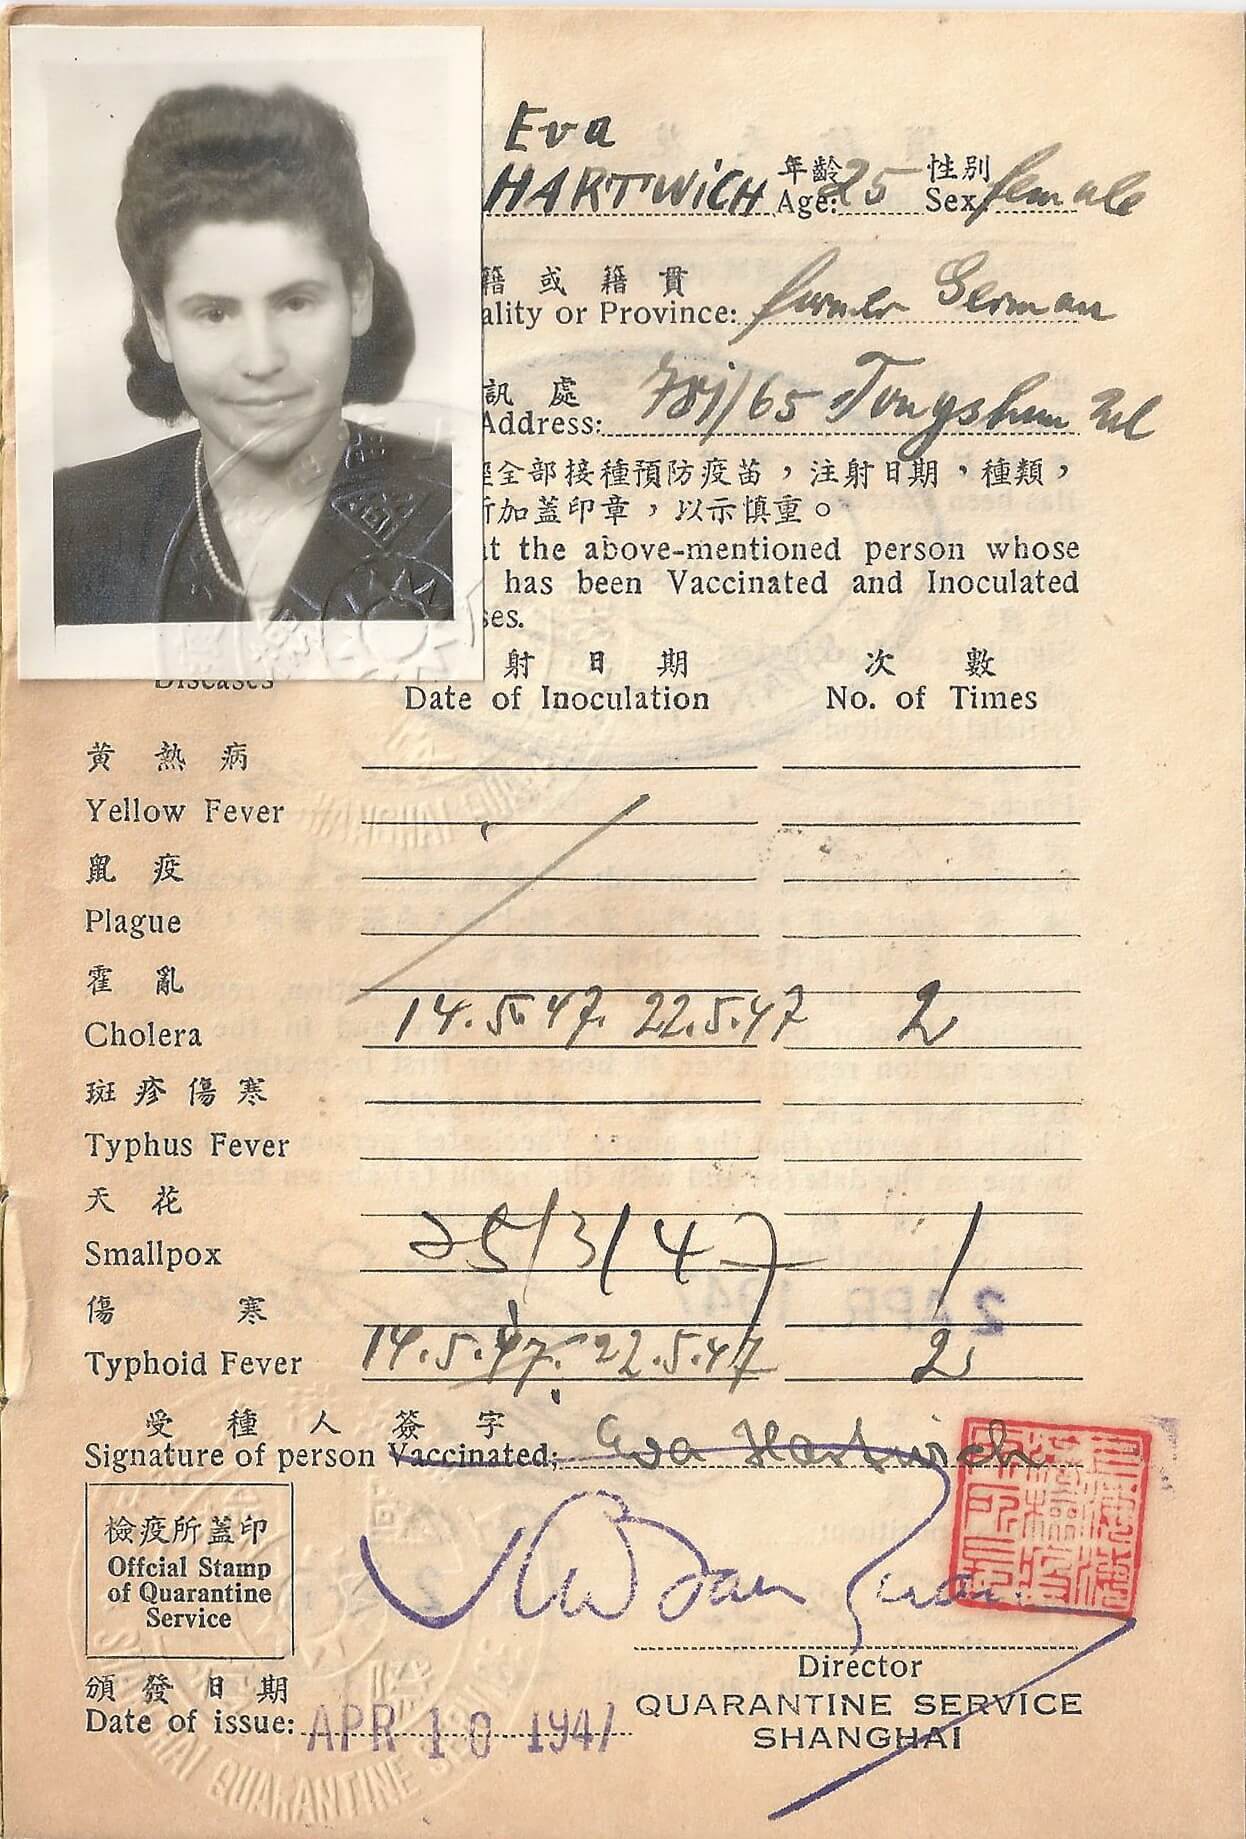 Eva
HARTWICH 年齡 Age: 25 性別 Sex: female
籍或籍貫
ality or Province: former German
訊處
Address: /65 Tongshan
全部接種預防疫苗，注射日期，種類，
所加蓋印章，以示慎重。
at the above-mentioned person whose
has been Vaccinated and Inoculated
ses.
射日期 次數
Diseases Date of Inoculation No. of Times
黃熱病
Yellow Fever
鼠疫
Plague
霍亂
Cholera 14.5.47. 22.5.47 2
斑疹傷寒
Typhus Fever
天花
Smallpox 25/3/47 1
傷寒
Typhoid Fever 14.5.47. 22.5.47 2
2 APR. 1947
受種人簽字
Signature of person Vaccinated: Eva Hartwich
檢疫所蓋印
Offcial Stamp
of Quarantine
Service
Director
頒發日期
Date of issue: APR 10 1947
QUARANTINE SERVICE
SHANGHAI
SHANGHAI QUARANTINE SERVICE